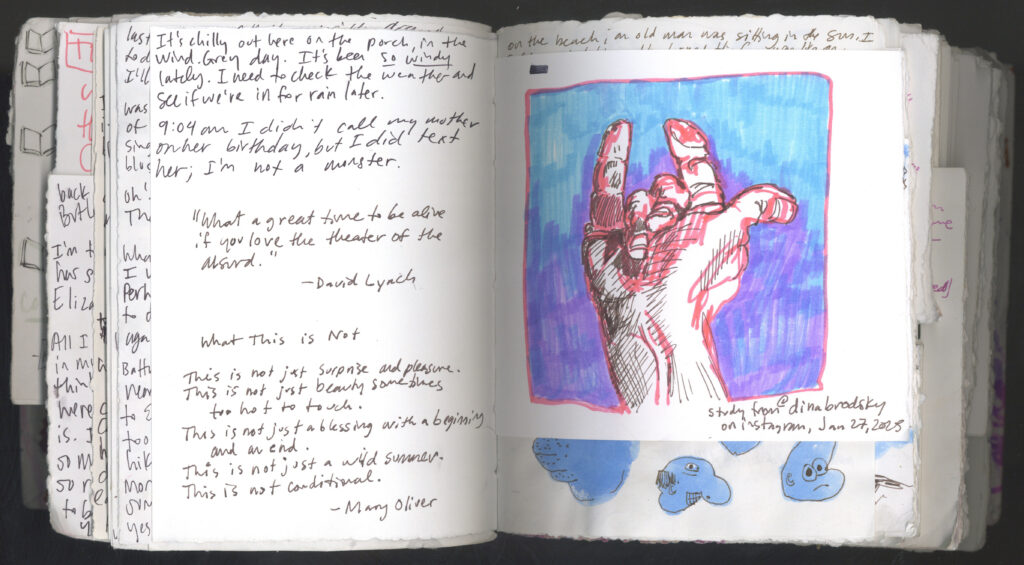 It's chilly out here on the porch, in the
wind. Grey day. It's been so windy
lately. I need to check the weather and
see if we're in for rain later.
9:04am I didn't call my mother
on her birthday, but I did text
her; I'm not a monster.
"What a great time to be alive
if you love the theater of the
absurd."
-David Lynch
What This is Not
This is not just surprise and pleasure.
This is not just beauty sometimes
too hot to touch.
This is not just a blessing with a beginning
and an end.
This is not just a wild summer.
This is not conditional.
-Mary Oliver
last
I'll
was
of
back
I'm t
has s
Eliza
All I
in my
thin
here
is. I
so m
so r
to b
oh'
Th
Wha
I
Perh
to d
aga
Batt
near
to
too
hik
mor
som
yes
on the beach, an old man was sitting in the sun. I
study from @dinabrodsky
on instagram, Jan 27, 2025